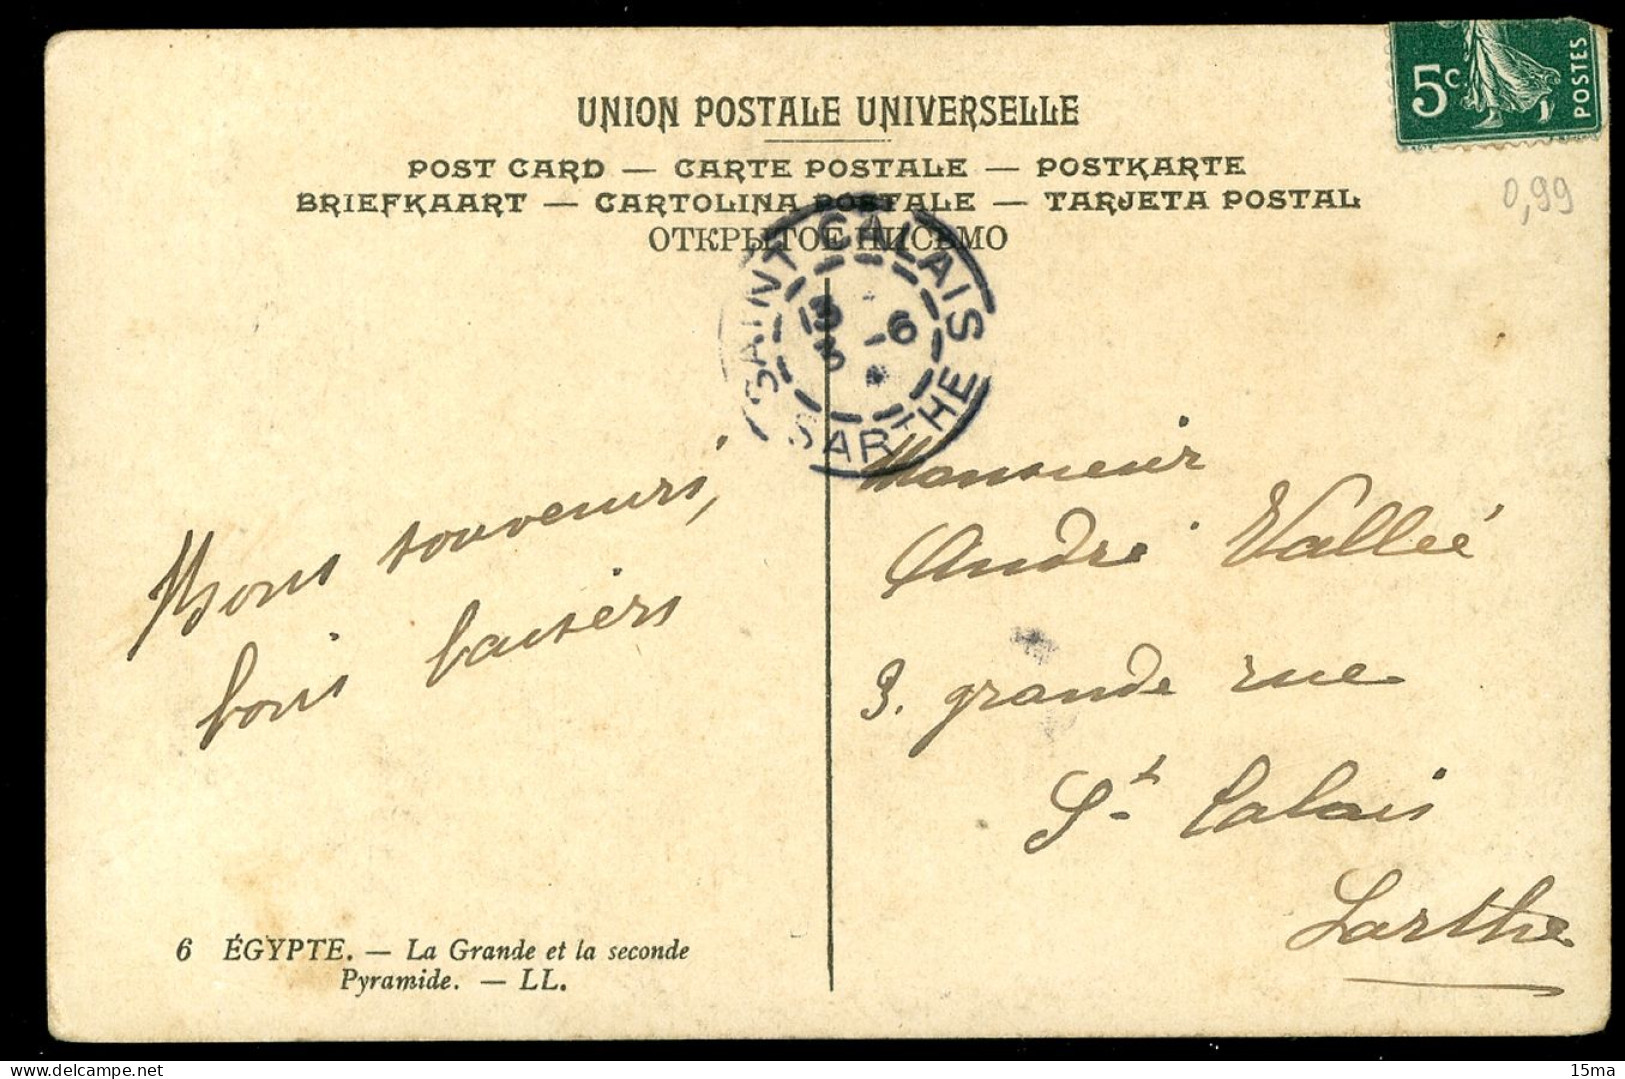 5c
POSTES
UNION POSTALE UNIVERSELLE
POST CARD — CARTE POSTALE — POSTKARTE
BRIEFKAART — CARTOLINA POSTALE — TARJETA POSTAL
ОТКРЫТОЕ ПИСЬМО
0,99
SAINT CALAIS
SARTHE
Bons souvenirs,
bons baisers
Monsieur
André Vallée
3. grande rue
St Calais
Sarthe
6 ÉGYPTE. — La Grande et la seconde
Pyramide. — LL.
15ma